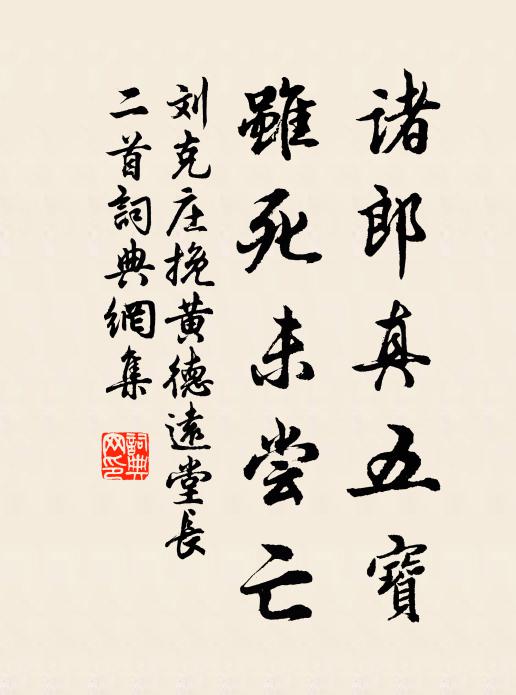 诸郎真五寶
雖死未尝亡
刘克庄挽黄德遠堂長
二首詞典網集
詞典网印